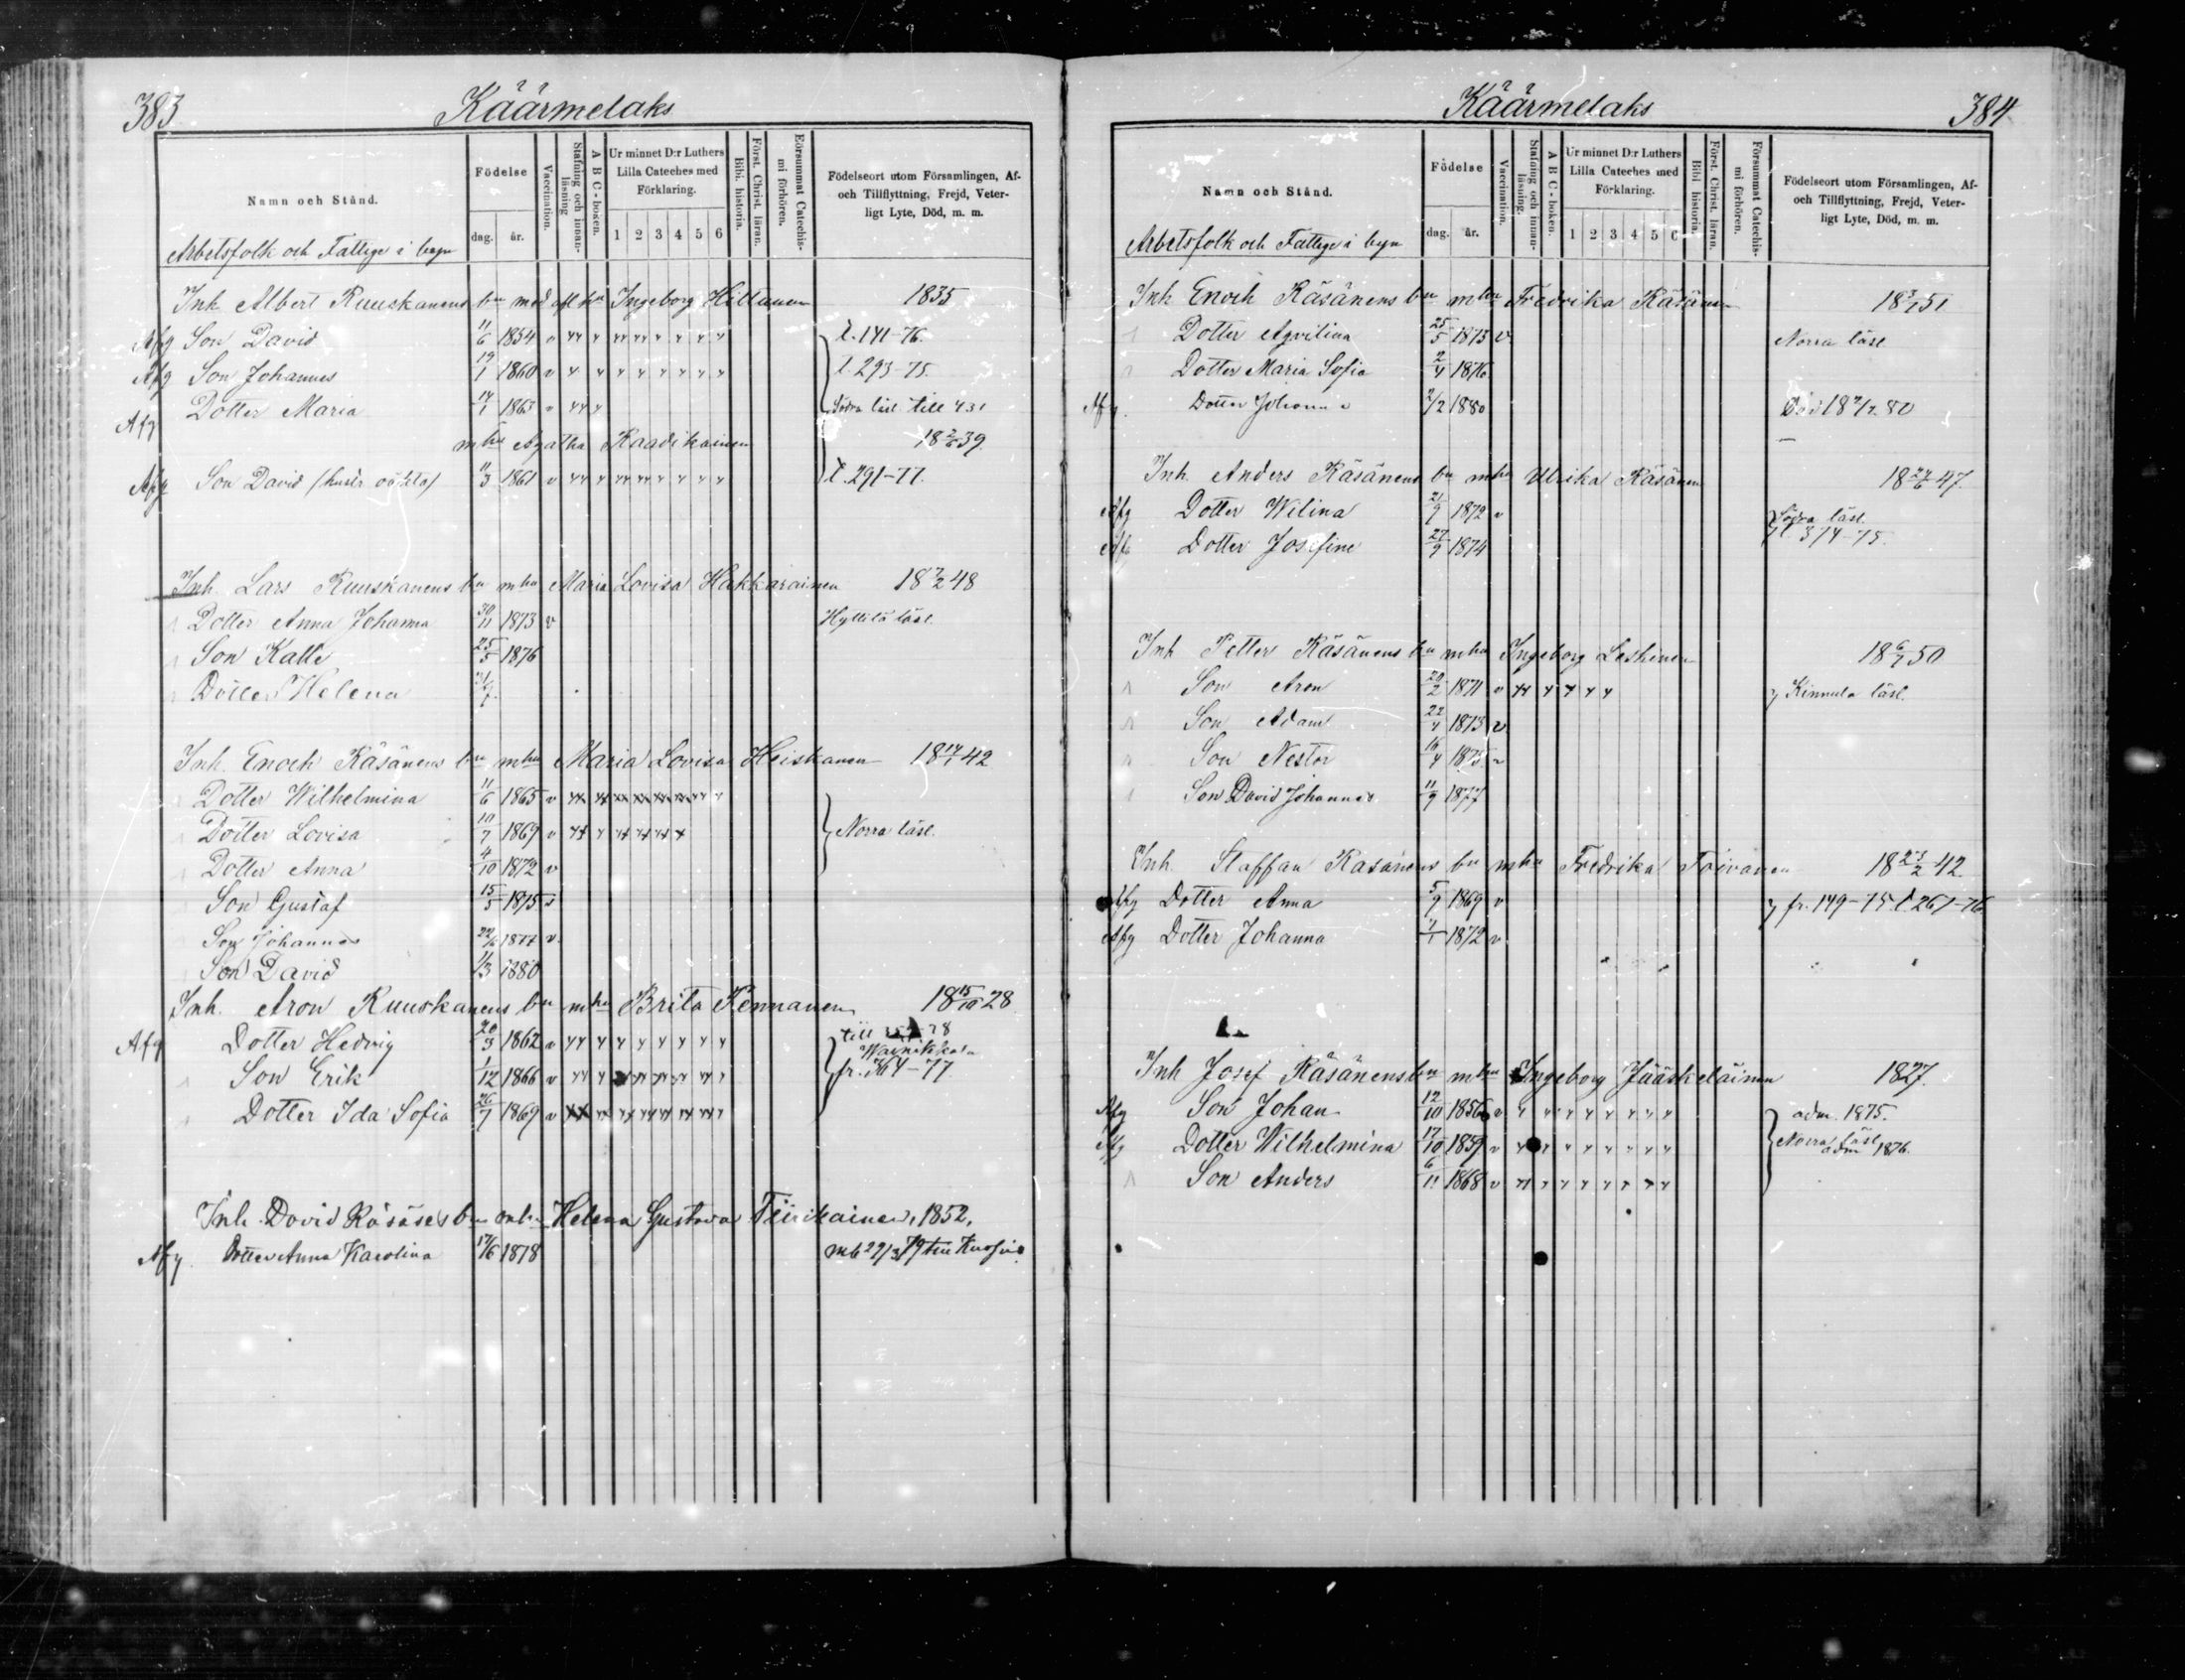 383
Käärmelaks
Namn och Stånd.
Födelse
dag. år.
Vaccination.
Stafning och innan-läsning
A B C-boken.
Ur minnet D:r Luthers Lilla Cateches med Förklaring.
1 2 3 4 5 6
Bibl. historia.
Först. Christ. läran.
Försummat Catechis-mi förhören.
Födelseort utom Församlingen, Af-
och Tillflyttning, Frejd, Veter-
ligt Lyte, Död, m. m.
Arbetsfolk och Fattige i byn
Inh. Albert Ruuskanens bn med afl. hu Ingeborg Hiltunen 1835
Afg Son David 11/6 1854 v t. 141-76.
Afg Son Johannes 19/1 1860 v t. 293-75.
Afg Dotter Maria 14/1 1863 v Södra läsl. till 431
mhu Agatha Raadikainen 18 2/6 39.
Afg Son David 11/3 1861 v t. 291-77.
Inh. Lars Ruuskanens bn mhu Maria Lovisa Hakkarainen 18 7/2 48
Dotter Anna Johanna 30/11 1873 v Hyttilä läsl.
Son Kalle 25/5 1876
Dotter Helena 31/7
Inh. Enoch Räsänens bn mhu Maria Lovisa Heiskanen 18 14/1 42
Dotter Wilhelmina 11/6 1865 v
Dotter Lovisa 10/7 1869 v Norra läsl.
Dotter Anna 4/10 1872 v
Son Gustaf 15/5 1875 v
Son Johannes 22/6 1877 v
Son David 11/3 1880
Inh. Aron Ruuskanens bn mhu Brita Pennanen 18 15/10 28
Afg Dotter Hedvig 20/3 1862 v till
Son Erik 1/12 1866 v fr. 364-77
Dotter Ida Sofia 26/7 1869 v
Inh. David Räsäses bn mhu Helena Gustava 1852.
Afg Dotter Anna Karolina 17/6 1878 mb 22/3 79 till Kuopio
Käärmelaks
384
Namn och Stånd.
Födelse
dag. år.
Vaccination.
Stafning och innan-läsning.
A B C-boken.
Ur minnet D:r Luthers Lilla Cateches med Förklaring.
1 2 3 4 5 6
Bibl historia.
Först. Christ. läran.
Försummat Catechis-mi förhören.
Födelseort utom Församlingen, Af-
och Tillflyttning, Frejd, Veter-
ligt Lyte, Död, m. m.
Arbetsfolk och Fattige i byn
Inh Enoch Räsänens bn mhu Fredrika Räsänen 18 3/1 51.
Dotter Aqvilina 25/5 1873 v Norra läsl
Dotter Maria Sofia 2/4 1876
Afg. Dotter Johanna 2/2 1880 Död 18 2/2 80
Inh. Anders Räsänens bn mhu Ulrika Räsänen 18 24/6 47.
Afg Dotter Wilina 21/9 1872 v Södra läsl.
Afg Dotter Josefine 27/9 1874 t 314-75.
Inh Petter Räsänens bn mhu Ingeborg Leskinen 18 6/7 50
Son Aron 20/2 1871 v Kinnula läsl.
Son Adam 22/4 1873 v
Son Nestor 16/4 1875 v
Son David Johannes 11/9 1877
Inh. Staffan Räsänens bn mhu Fredrika Toivanen 18 23/2 42.
Afg Dotter Anna 5/9 1869 v fr. 149-75 t. 261-76
Afg Dotter Johanna 1/1 1872 v
Inh Josef Räsänens bn mhu Ingeborg Jääskeläinen 1827.
Afg Son Johan 12/10 1856 v adm. 1875.
Afg Dotter Wilhelmina 17/10 1859 v Norra läsl. adm 1876.
Son Anders 6/11 1868 v